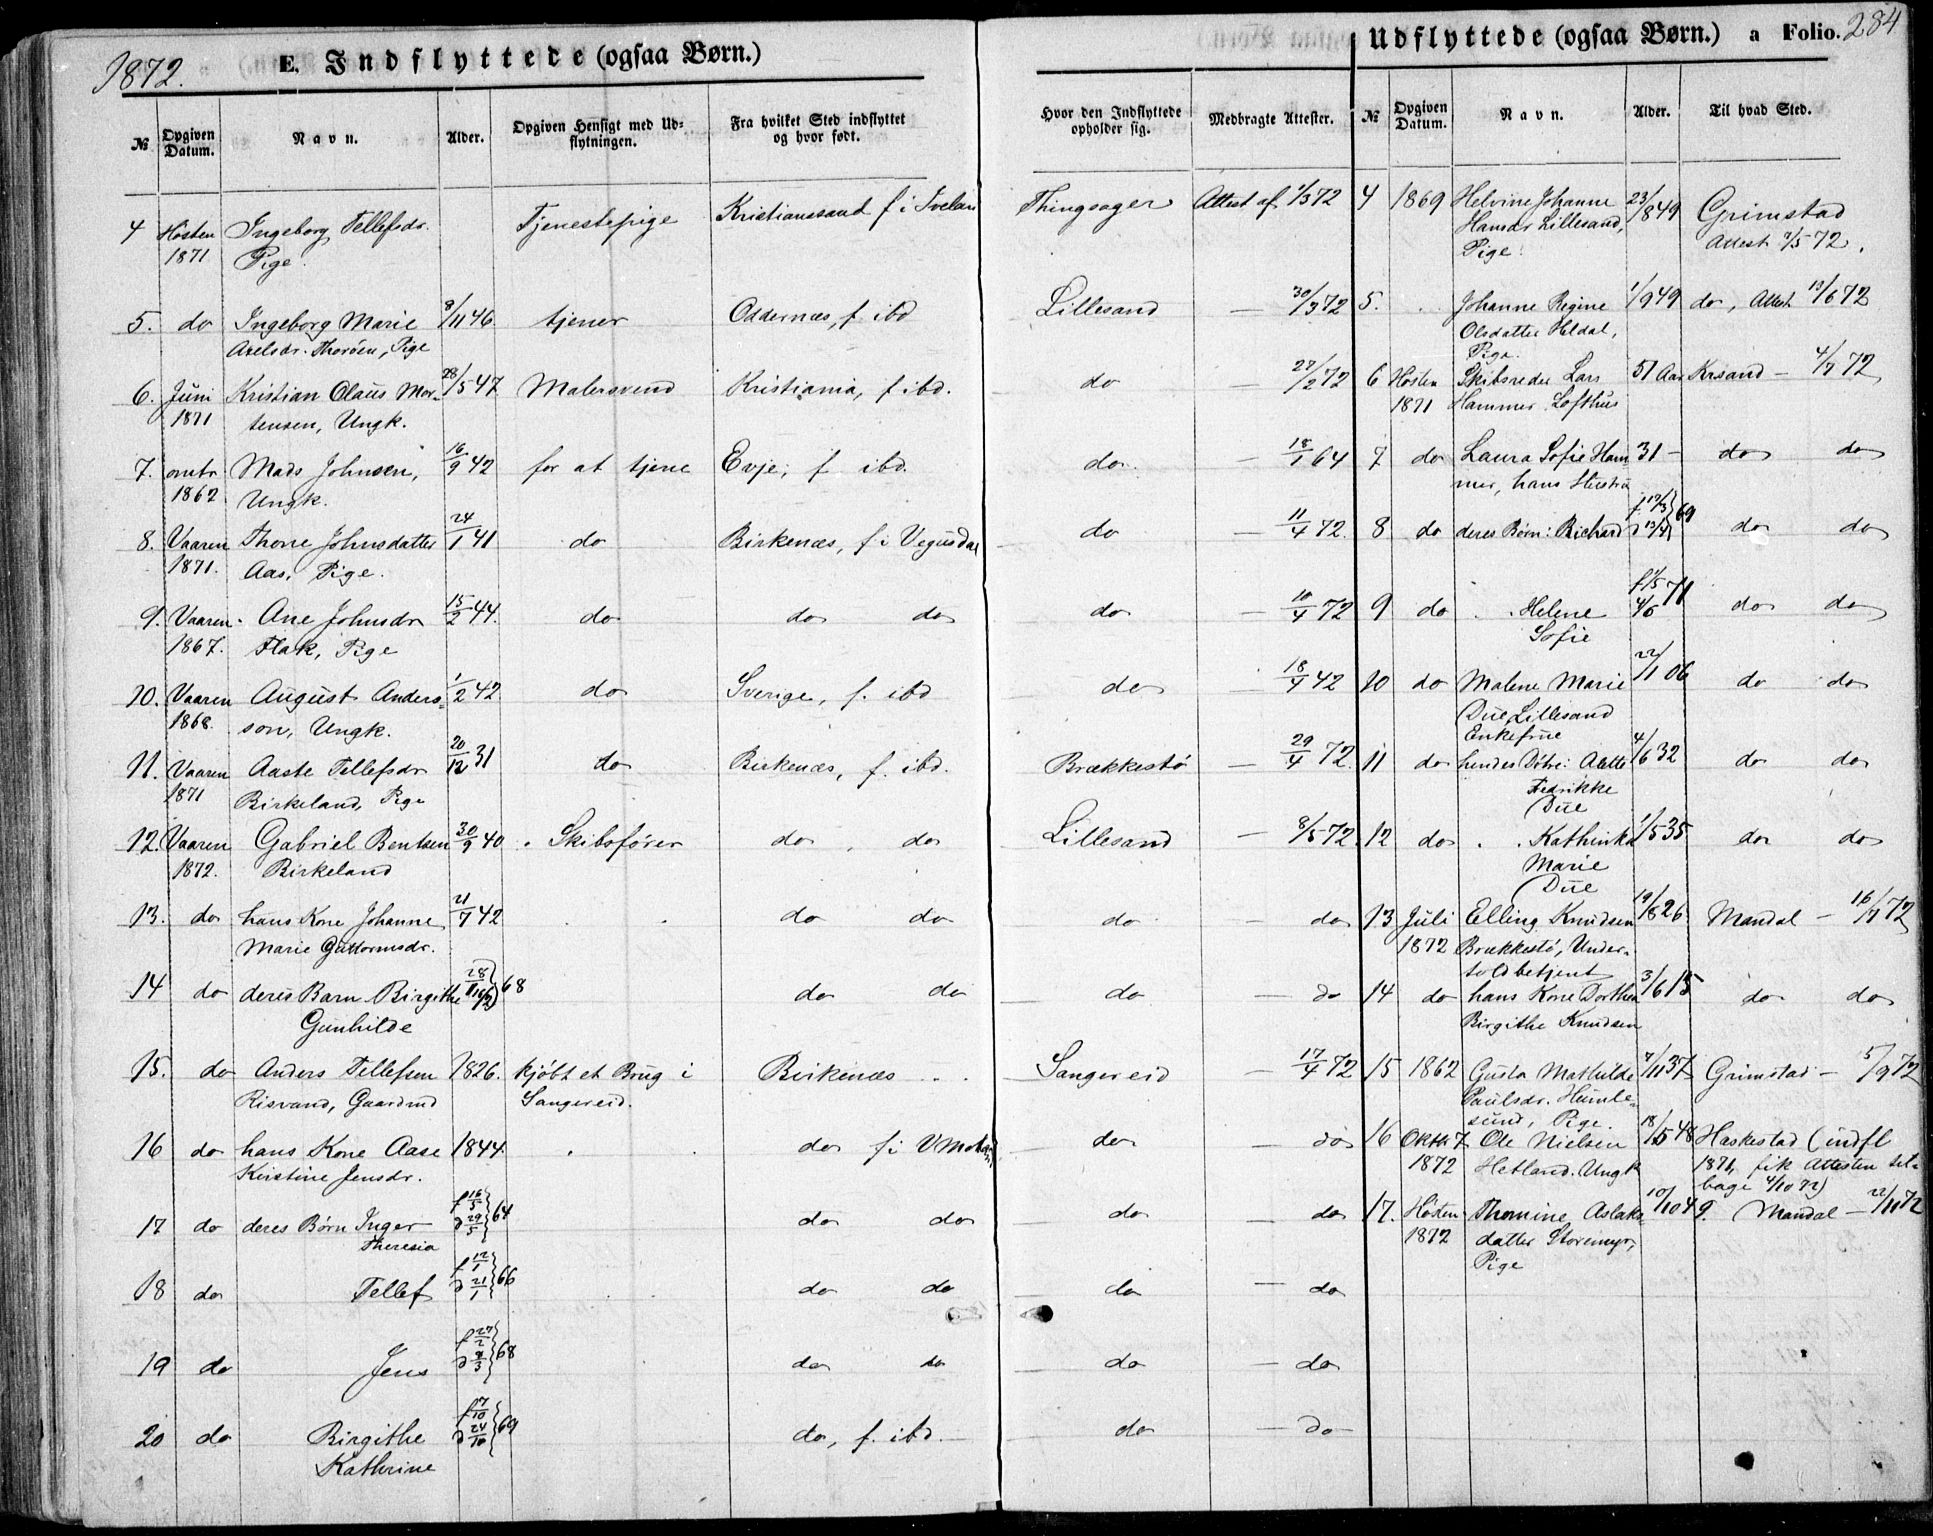 1872.
E. Indflyttede (ogsaa Børn.)
№ Opgiven Datum. Navn. Alder. Opgiven Hensigt med Udflytningen. Fra hvilket Sted indflyttet og hvor født. Hvor den Indflyttede opholder sig. Medbragte Attester.
4 Høsten Ingeborg Tellefsdr. Tjenestepige Kristianssand f i Iveland Thingsager Attest af 1/3 72
1871 Pige.
5. do Ingeborg Marie 8/11 46. tjener Oddernæs, f ibd Lillesand — 30/3 72
Axelsdr. Thorøen, Pige
6. Juni Kristian Olaus Mor- 28/5 47 Malersvend Kristiania, f ibd. do — 27/2 72
1871 tensen, Ungk.
7. omtr Mads Johnsen, 16/9 42 for at tjene Evje, f ibd. do — 18/1 64
1862 Ungk.
8. Vaaren Thone Johnsdatter 24/1 41 do Birkenæs, f i Vegusdal do — 11/4 72.
1871. Aas, Pige.
9. Vaaren Ane Johnsdr 15/2 44. do do do do — 10/4 72
1867. Flak, Pige
10. Vaaren August Anders- 1/2 42. do Sverige, f. ibd do — 18/4 42
1868. son, Ungk.
11. Vaaren Aaste Tellefsdr 20/12 31 do Birkenæs, f. ibd. Brækkestø — 29/4 72.
1871 Birkeland, Pige
12. Vaaren Gabriel Bentsen 30/9 40 Skibsfører do do Lillesand — 8/5 72.
1872. Birkeland
13. do hans Kone Johanne 21/7 42 do do do — do
Marie Guttormsdr.
14 do deres Barn Birgithe 28/11 68 do do do — do
Gunhilde
15. do Anders Tellefsen 1826. kjøbt et Brug i Birkenæs Sangereid — 17/4 72
Risvand, Gaardmd Sangereid.
16 do hans Kone Aase 1844. do f i do — do
Kirstine Jensdr.
17 do deres Børn Inger f 16/5 d 29/5 64 do do do — do
Theresia
18 do Tellef f 12/1 d 21/1 66 do do do — do
19 do Jens f 27/2 d 8/3 68 do do do — do
20 do Birgithe f 17/10 d 24/10 69 do, f. ibd. do — do
Kathrine
Udflyttede (ogsaa Børn.) a Folio. 284
№ Opgiven Datum. Navn. Alder. Til hvad Sted.
4 1869 Helvine Johanne 23/8 49 Grimstad
Hansdr Lillesand, Attest 7/5 72.
Pige.
5. Johanne Regine 1/9 49 do, Attest 19/6 72
Olsdatter Heldal,
Pige.
6 Høsten Skibsreder Lars 51 Aar Krsand — 4/7 72
1871 Hammer Lofthus
7 do Laura Sofie Ham- 31 — do do
mer, hans Hustru
8 do deres Børn: Richard 69 do do
9 do Helene 71 do do
Sofie
10 do Malene Marie 22/11 06 do do
Due, Lillesand
Enkefrue
11 do hendes Døtre: Alette 4/6 32 do do
Fredrikke
Due
12 do Kathinka 1/5 35 do do
Marie
Due
13 Juli Elling Knudsen 19/8 26 Mandal — 16/7 72
1872 Brækkestø, Under-
toldbetjent
14 do hans Kone Dorthea 3/6 15 do do
Birgithe Knudsen
15 1862 Gusta Mathilde 7/11 37 Grimstad — 5/9 72
Paulsdr. Humle-
sund, Pige.
16 Oktb. 7 Ole Nielsen 18/5 48 Haskestad (indfl
1872 Hetland. Ungk 1871, fik Attesten til-
bage 4/10 72)
17. Høsten Thomine Aslaks- 10/10 49. Mandal — 22/11 72
1872 datter Storemyr,
Pige